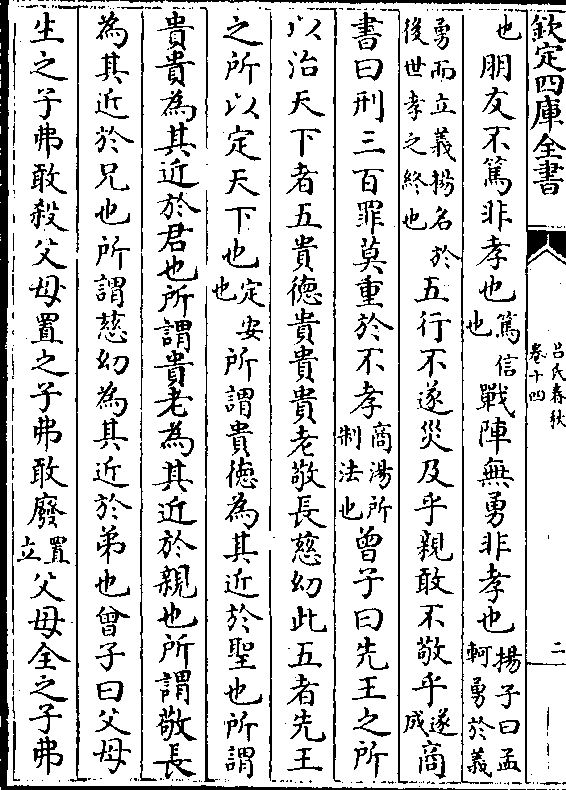 欽定四庫全書
呂氏春秋
卷十四
二
也朋友不篤非孝也篤信也戰陣無勇非孝也揚子曰孟軻勇於義
勇而立義揚名於後世孝之終也五行不遂災及乎親敢不敬乎遂成商
書曰刑三百罪莫重於不孝商湯所制法也曾子曰先王之所
以治天下者五貴德貴貴貴老敬長慈幼此五者先王
之所以定天下也定安也所謂貴德為其近於聖也所謂
貴貴為其近於君也所謂貴老為其近於親也所謂敬長
為其近於兄也所謂慈幼為其近於弟也曾子曰父母
生之子弗敢殺父母置之子弗敢廢置立父母全之子弗